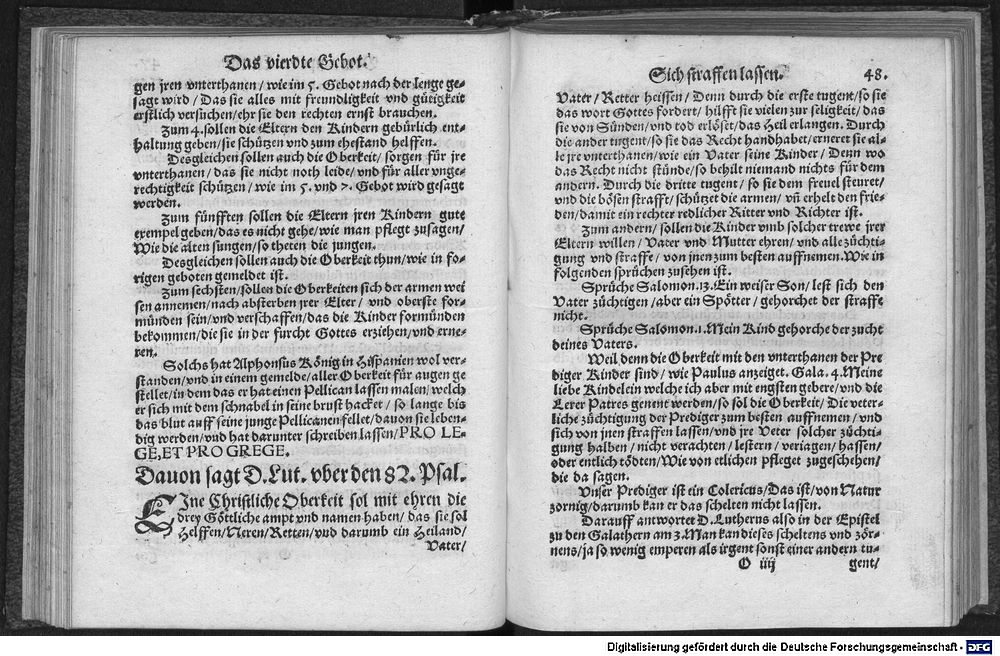 Das vierdte Gebot.
gen jren vnterthanen/ wie im 5. Gebot nach der lenge ge-
sagt wird/ Das sie alles mit freundligkeit vnd gütigkeit
erstlich versuchen/ ehr sie den rechten ernst brauchen.
Zum 4. sollen die Eltern den Kindern gebürlich ent-
haltung geben/ sie schützen vnd zum ehestand helffen.
Desgleichen sollen auch die Oberkeit/ sorgen für jre
vnterthanen/ das sie nicht noth leide/ vnd für aller vnge-
rechtigkeit schützen/ wie im 5. vnd 7. Gebot wird gesagt
werden.
Zum fünfften sollen die Eltern jren Kindern gute
exempel geben/ das es nicht gehe/ wie man pflegt zusagen/
Wie die alten sungen/ so theten die jungen.
Desgleichen sollen auch die Oberkeit thun/ wie in fo-
rigen geboten gemeldet ist.
Zum sechsten/ sollen die Oberkeiten sich der armen wei
sen annemen/ nach absterben jrer Elter/ vnd oberste for-
münden sein/ vnd verschaffen/ das die Kinder formünden
bekommen/ die sie in der furcht Gottes erziehen/ vnd erne-
ren.
Solchs hat Alphonsus König in Hispanien wol ver-
standen/ vnd in einem gemelde/ aller Oberkeit für augen ge
stellet/ in dem das er hat einen Pellican lassen malen/ welch
er sich mit dem schnabel in seine brust hacket/ so lange bis
das blut auff seine junge Pellicanen fellet/ dauon sie leben-
dig werden/ vnd hat darunter schreiben lassen/ PRO LE-
GE, ET PRO GREGE.
Dauon sagt D. Lut. vber den 82. Psal.
Eine Christliche Oberkeit sol mit ehren die
drey Göttliche ampt vnd namen haben/ das sie sol
Helffen/ Neren/ Retten/ vnd darumb ein Heiland/
Vater/
Sich straffen lassen. 48.
Vater/ Retter heissen/ Denn durch die erste tugent/ so sie
das wort Gottes fordert/ hilfft sie vielen zur seligkeit/ das
sie von Sünden/ vnd tod erlöset/ das Heil erlangen. Durch
die ander tugent/ so sie das Recht handhabet/ erneret sie al-
le jre vnterthanen/ wie ein Vater seine Kinder/ Denn wo
das Recht nicht stünde/ so behilt niemand nichts für dem
andern. Durch die dritte tugent/ so sie dem freuel steuret/
vnd die bösen strafft/ schützet die armen/ vñ erhelt den frie-
den/ damit ein rechter redlicher Ritter vnd Richter ist.
Zum andern/ sollen die Kinder vmb solcher trewe jrer
Eltern willen/ Vater vnd Mutter ehren/ vnd alle züchti-
gung vnd straffe/ von jnen zum besten auffnemen. Wie in
folgenden sprüchen zusehen ist.
Sprüche Salomon. 13. Ein weiser Son/ lest sich den
Vater züchtigen/ aber ein Spötter/ gehorchet der straffe
nicht.
Sprüche Salomon. 1. Mein Kind gehorche der zucht
deines Vaters.
Weil denn die Oberkeit mit den vnterthanen der Pre
diger Kinder sind/ wie Paulus anzeiget. Gala. 4. Meine
liebe Kindelein welche ich aber mit engsten gebere/ vnd die
Lerer Patres genent werden/ so söl die Oberkeit/ Die veter-
liche züchtigung der Prediger zum besten auffnemen/ vnd
sich von jnen straffen lassen/ vnd jre Veter solcher züchti-
gung halben/ nicht verachten/ lestern/ veriagen/ hassen/
oder entlich tödten/ Wie von etlichen pfleget zugeschehen/
die da sagen.
Vnser Prediger ist ein Colericus/ Das ist/ von Natur
zornig/ darumb kan er das schelten nicht lassen.
Darauff antwortet D. Lutherus also in der Epistel
zu den Galathern am 3. Man kan dieses scheltens vnd zör-
nens/ ja so wenig emperen als irgent sonst einer andern tu-
O iiij gent/
Digitalisierung gefördert durch die Deutsche Forschungsgemeinschaft - DFG